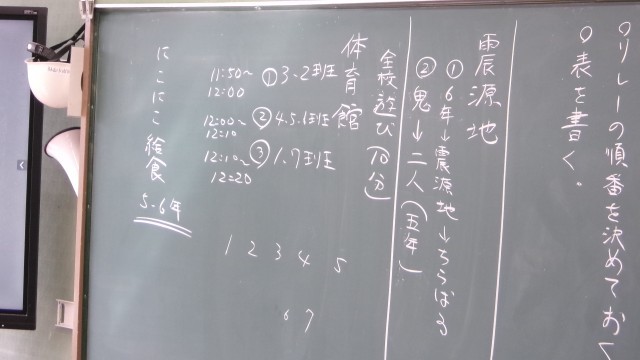 ○リレーの順番を決めておく
○表を書く。
震源地
①6年→震源地→ちらばる
②鬼→二人(五年)
全校遊び(10分)
体育館
11:50〜12:00 ①3、2班
12:00〜12:10 ②4.5.6班
12:10〜12:20 ③1、7班
1 2 3 4 5
6 7
にこにこ給食 5-6年